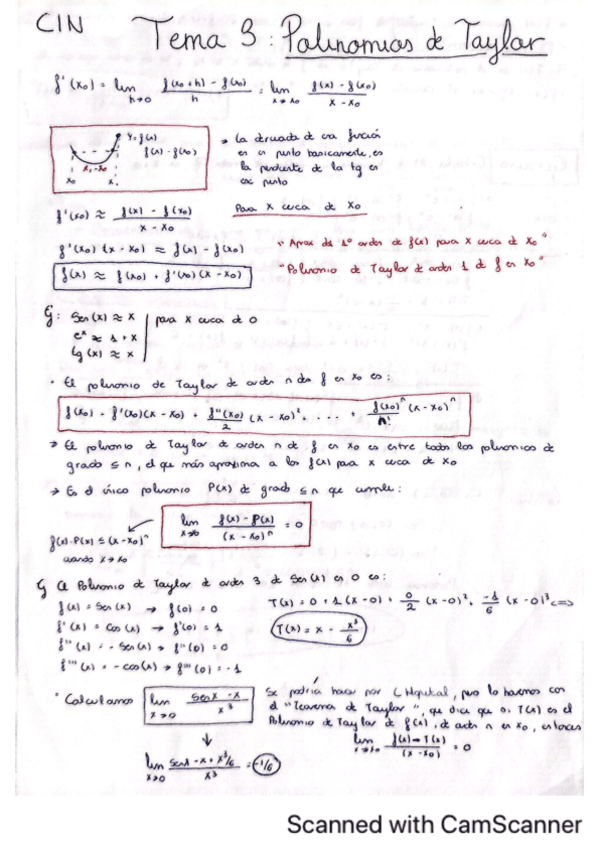 CIN
Tema 3: Polinomios de Taylor
f'(x₀) = lim h→0 f(x₀+h) - f(x₀) / h = lim x→x₀ f(x) - f(x₀) / x - x₀
Y=f(x)
f(x) - f(x₀)
x - x₀
x₀ x
→ La derivada de una función
en un punto basicamente, es
la pendiente de la tg en
ese punto
f'(x₀) ≈ f(x) - f(x₀) / x - x₀ Para x cerca de x₀
f'(x₀)(x - x₀) ≈ f(x) - f(x₀)
f(x) ≈ f(x₀) + f'(x₀)(x - x₀)
"Aprox de 1º orden de f(x) para x cerca de x₀"
"Polinomio de Taylor de orden 1 de f en x₀"
Ej: Sen(x) ≈ x para x cerca de 0
eˣ ≈ 1 + x
tg(x) ≈ x
• El polinomio de Taylor de orden n de f en x₀ es:
f(x₀) + f'(x₀)(x - x₀) + f''(x₀)/2 (x - x₀)² + ... + f(x₀)ⁿ/n! (x - x₀)ⁿ
→ El polinomio de Taylor de orden n de f en x₀ es entre todos los polinomios de
grado ≤ n, el que más aproxima a los f(x) para x cerca de x₀
→ Es el único polinomio P(x) de grado ≤ n que cumple:
lim f(x) - P(x) / (x - x₀)ⁿ = 0
f(x) - P(x) ≤ (x - x₀)ⁿ
cuando x → x₀
Ej El Polinomio de Taylor de orden 3 de Sen(x) en 0 es:
f(x) = Sen(x) → f(0) = 0
f'(x) = Cos(x) → f'(0) = 1
f''(x) = - Sen(x) → f''(0) = 0
f'''(x) = - cos(x) → f'''(0) = -1
T(x) = 0 + 1(x - 0) + 0/2 (x - 0)² + -1/6 (x - 0)³ <=>
T(x) = x - x³/6
• Calculamos lim x→0 senx - x / x³
Se podría hacer por L'Hopital, pero lo haremos con
el "Teorema de Taylor", que dice que si T(x) es el
Polinomio de Taylor de f(x), de orden n en x₀, entonces
lim x→x₀ f(x) - T(x) / (x - x₀) = 0
↓
lim x→0 senx - x + x³/6 / x³ = -1/6
Scanned with CamScanner